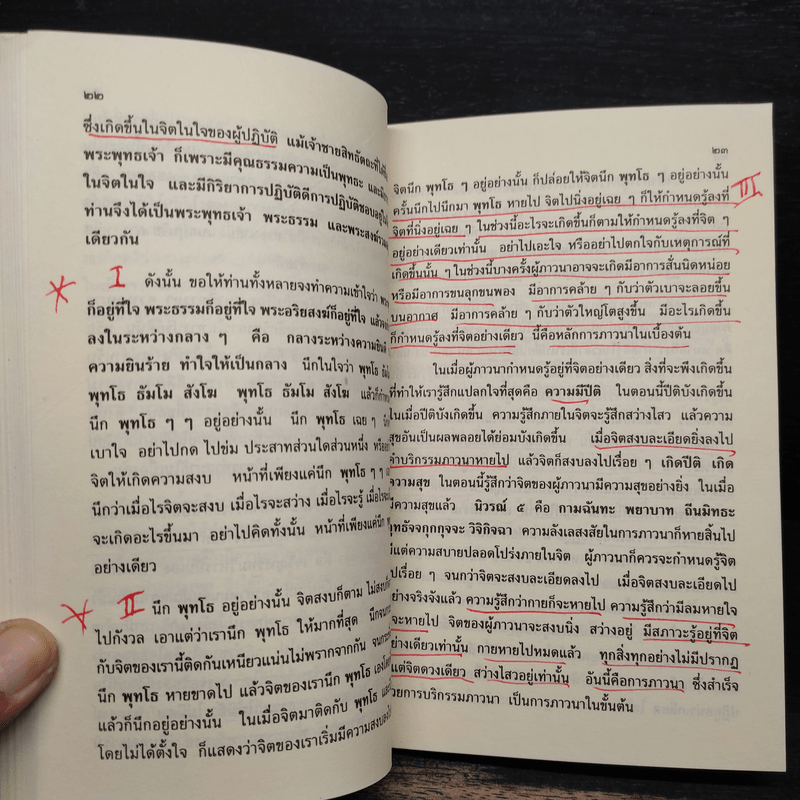 ๒๒
ซึ่งเกิดขึ้นในจิตในใจของผู้ปฏิบัติ แม้เจ้าชายสิทธัตถะที่ได้
พระพุทธเจ้า ก็เพราะมีคุณธรรมความเป็นพุทธะ และมี
ในจิตในใจ และมีกิริยาการปฏิบัติดีการปฏิบัติชอบอยู่ใน
ท่านจึงได้เป็นพระพุทธเจ้า พระธรรม และพระสงฆ์
เดียวกัน
I ดังนั้น ขอให้ท่านทั้งหลายจงทำความเข้าใจว่า
ก็อยู่ที่ใจ พระธรรมก็อยู่ที่ใจ พระอริยสงฆ์ก็อยู่ที่ใจ แล้ว
ลงในระหว่างกลาง ๆ คือ กลางระหว่างความยินดี
ความยินร้าย ทำใจให้เป็นกลาง นึกในใจว่า พุทโธ
พุทโธ ธัมโม สังโฆ พุทโธ ธัมโม สังโฆ แล้วก็
นึก พุทโธ ๆ ๆ อยู่อย่างนั้น นึก พุทโธ เฉย ๆ
เบาใจ อย่าไปกด ไปข่ม ประสาทส่วนใดส่วนหนึ่ง หรือ
จิตให้เกิดความสงบ หน้าที่เพียงแค่นึก พุทโธ ๆ ๆ
นึกว่าเมื่อไรจิตจะสงบ เมื่อไรจะสว่าง เมื่อไรจะรู้ เมื่อไร
จะเกิดอะไรขึ้นมา อย่าไปคิดทั้งนั้น หน้าที่เพียงแค่นึก
อย่างเดียว
II นึก พุทโธ อยู่อย่างนั้น จิตสงบก็ตาม ไม่สงบก็
ไปกังวล เอาแต่ว่าเรานึก พุทโธ ให้มากที่สุด นึกจน
กับจิตของเรานี้ติดกันเหนียวแน่นไม่พรากจากกัน จน
นึก พุทโธ หายขาดไป แล้วจิตของเรานึก พุทโธ เอง
แล้วก็นึกอยู่อย่างนั้น ในเมื่อจิตมาติดกับ พุทโธ และ
โดยไม่ได้ตั้งใจ ก็แสดงว่าจิตของเราเริ่มมีความสงบ
๒๓
จิตนึก พุทโธ ๆ อยู่อย่างนั้น ก็ปล่อยให้จิตนึก พุทโธ ๆ อยู่อย่างนั้น
ครั้นนึกไปนึกมา พุทโธ หายไป จิตไปนิ่งอยู่เฉย ๆ ก็ให้กำหนดรู้ลงที่ III
จิตที่นิ่งอยู่เฉย ๆ ในช่วงนี้อะไรจะเกิดขึ้นก็ตามให้กำหนดรู้ลงที่จิต ๆ
อยู่อย่างเดียวเท่านั้น อย่าไปเอะใจ หรืออย่าไปตกใจกับเหตุการณ์ที่
เกิดขึ้นนั้น ๆ ในช่วงนี้บางครั้งผู้ภาวนาอาจจะเกิดมีอาการสั่นนิดหน่อย
หรือมีอาการขนลุกขนพอง มีอาการคล้าย ๆ กับว่าตัวเบาจะลอยขึ้น
บนอากาศ มีอาการคล้าย ๆ กับว่าตัวใหญ่โตสูงขึ้น มีอะไรเกิดขึ้น
ก็กำหนดรู้ลงที่จิตอย่างเดียว นี้คือหลักการภาวนาในเบื้องต้น
ในเมื่อผู้ภาวนากำหนดรู้อยู่ที่จิตอย่างเดียว สิ่งที่จะพึงเกิดขึ้น
ที่ทำให้เรารู้สึกแปลกใจที่สุดคือ ความมีปีติ ในตอนนี้ปีติบังเกิดขึ้น
ในเมื่อปีติบังเกิดขึ้น ความรู้สึกภายในจิตจะรู้สึกสว่างไสว แล้วความ
สุขอันเป็นผลพลอยได้ย่อมบังเกิดขึ้น เมื่อจิตสงบละเอียดยิ่งลงไป
คำบริกรรมภาวนาหายไป แล้วจิตก็สงบลงไปเรื่อย ๆ เกิดปีติ เกิด
ความสุข ในตอนนี้รู้สึกว่าจิตของผู้ภาวนามีความสุขอย่างยิ่ง ในเมื่อ
มีความสุขแล้ว นิวรณ์ ๕ คือ กามฉันทะ พยาบาท ถีนมิทธะ
ทธัจจกุกกุจจะ วิจิกิจฉา ความลังเลสงสัยในการภาวนาก็หายสิ้นไป
มีแต่ความสบายปลอดโปร่งภายในจิต ผู้ภาวนาก็ควรจะกำหนดรู้จิต
ไปเรื่อย ๆ จนกว่าจิตจะสงบละเอียดลงไป เมื่อจิตสงบละเอียดไป
อย่างจริงจังแล้ว ความรู้สึกว่ากายก็จะหายไป ความรู้สึกว่ามีลมหายใจ
จะหายไป จิตของผู้ภาวนาจะสงบนิ่ง สว่างอยู่ มีสภาวะรู้อยู่ที่จิต
ย่างเดียวเท่านั้น กายหายไปหมดแล้ว ทุกสิ่งทุกอย่างไม่มีปรากฏ
แต่จิตดวงเดียว สว่างไสวอยู่เท่านั้น อันนี้คือการภาวนา ซึ่งสำเร็จ
วยการบริกรรมภาวนา เป็นการภาวนาในขั้นต้น